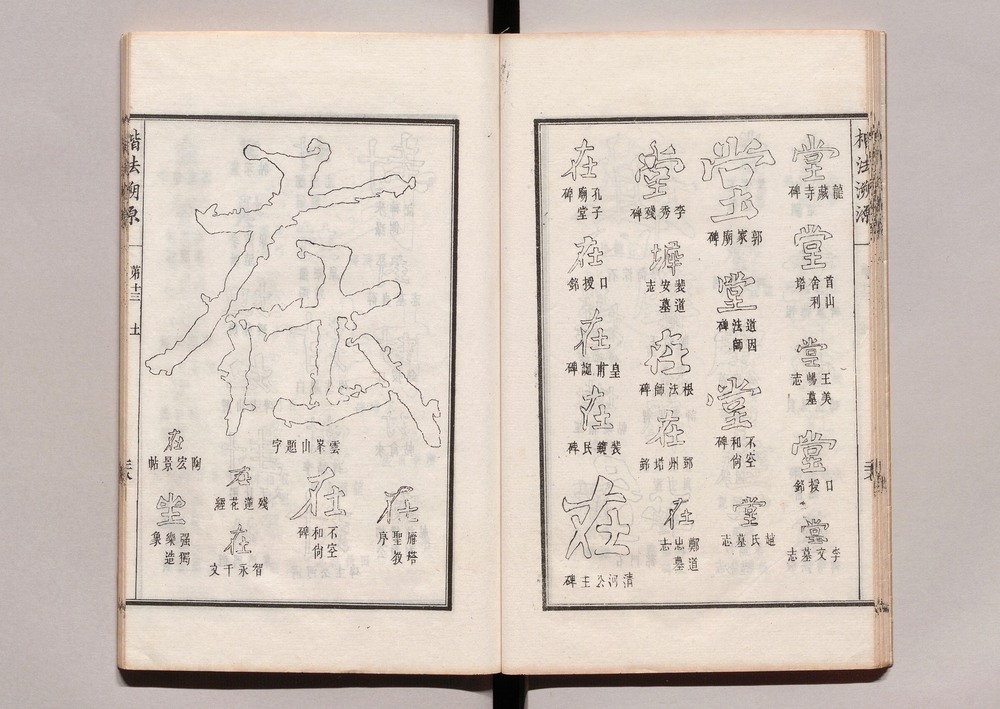 楷法溯源
堂
龍藏寺碑
堂
首山舍利塔
堂
王美暢墓志
堂
口授銘
堂
李文墓志
堂
郭家廟碑
堂
道因法師碑
堂
不空和尚碑
堂
趙氏墓志
堂
李秀殘碑
裴道安墓志
在
根法師碑
在
鄧州塔銘
在
鄭道忠墓志
在
孔子廟堂碑
在
口授銘
在
皇甫誕碑
在
裴鏡民碑
在
清河公主碑
在
雁塔聖教序
在
雲峯山題字
在
不空和尚碑
在
殘蓮花經
在
智永千文
在
陶宏景帖
坐
强獨樂造象
楷法溯源
第十三
土